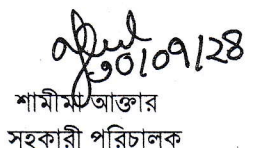 ৩০/০৭/২৪
শামীমা আক্তার
সহকারী পরিচালক